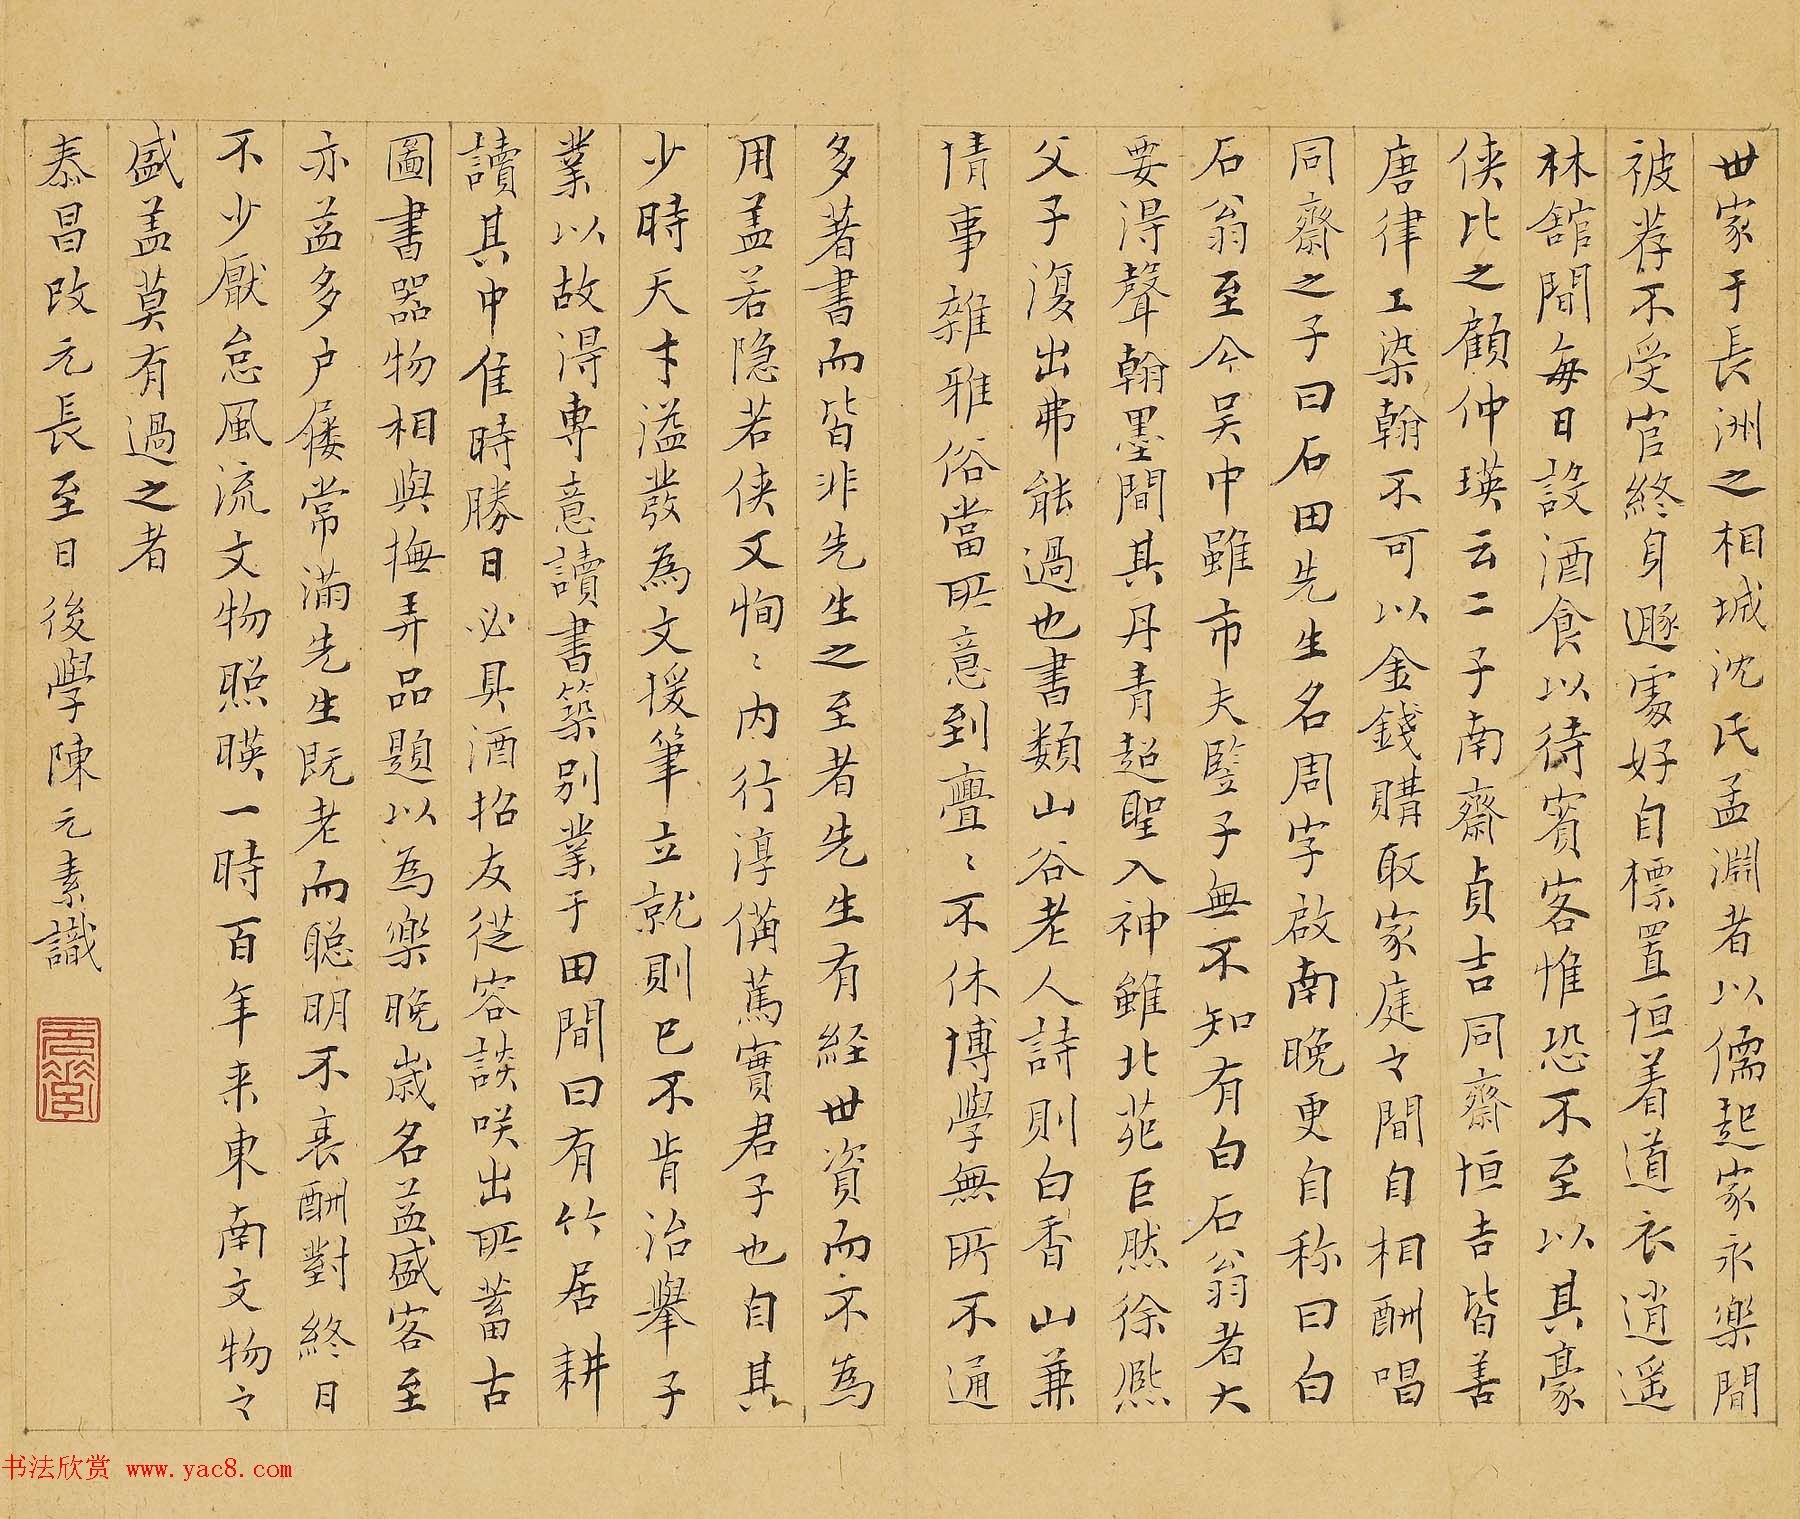 世家于長洲之相城沈氏孟淵者以儒起家永樂間
被荐不受官終身遯處好自標置恒着道衣逍遥
林舘間每日設酒食以待賓客惟恐不至以其豪
侠比之顧仲瑛云二子南齋貞吉同齋恒吉皆善
唐律工染翰不可以金錢購取家庭之間自相酬唱
同齋之子曰石田先生名周字啟南晚更自称曰白
石翁至今吴中雖市夫豎子無不知有白石翁者大
要得聲翰墨間其丹青超聖入神雖北苑巨然徐熙
父子復出弗能過也書類山谷老人詩則白香山兼
情事雜雅俗當所意到亹〻不休博學無所不通
多著書而皆非先生之至者先生有経世資而不為
用盖若隐若侠又恂〻内行淳備篤實君子也自其
少時天才溢發為文援筆立就則已不肯治舉子
業以故得専意讀書築別業于田間曰有竹居耕
讀其中隹時勝日必具酒招友從容談咲出所蓄古
圖書器物相與撫弄品題以為樂晚歲名益盛客至
亦益多户屨常滿先生既老而聪明不衰酬對終日
不少厭怠風流文物照暎一時百年来東南文物之
盛盖莫有過之者
泰昌改元長至日後學陳元素識
书法欣赏 www.yac8.com